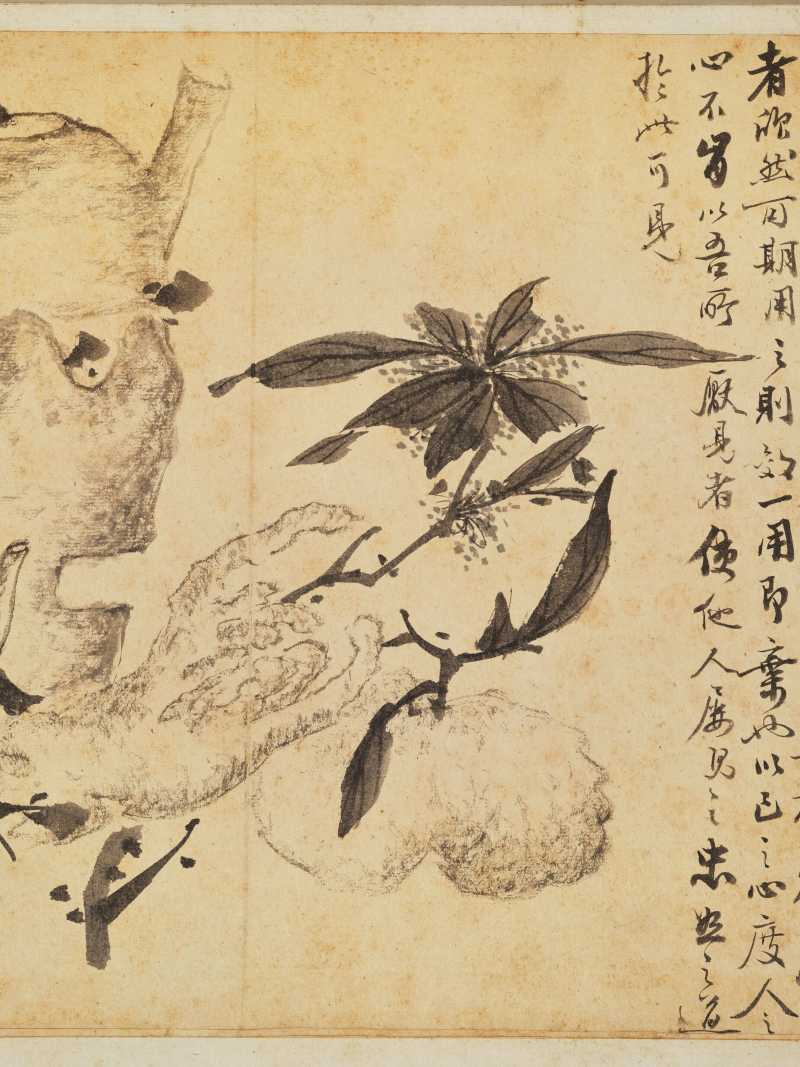 者欣然可期用之則殺一用即棄也以己之心度人之
心不質以吾所厭見者使他人屢見之忠恕之道
於此可見